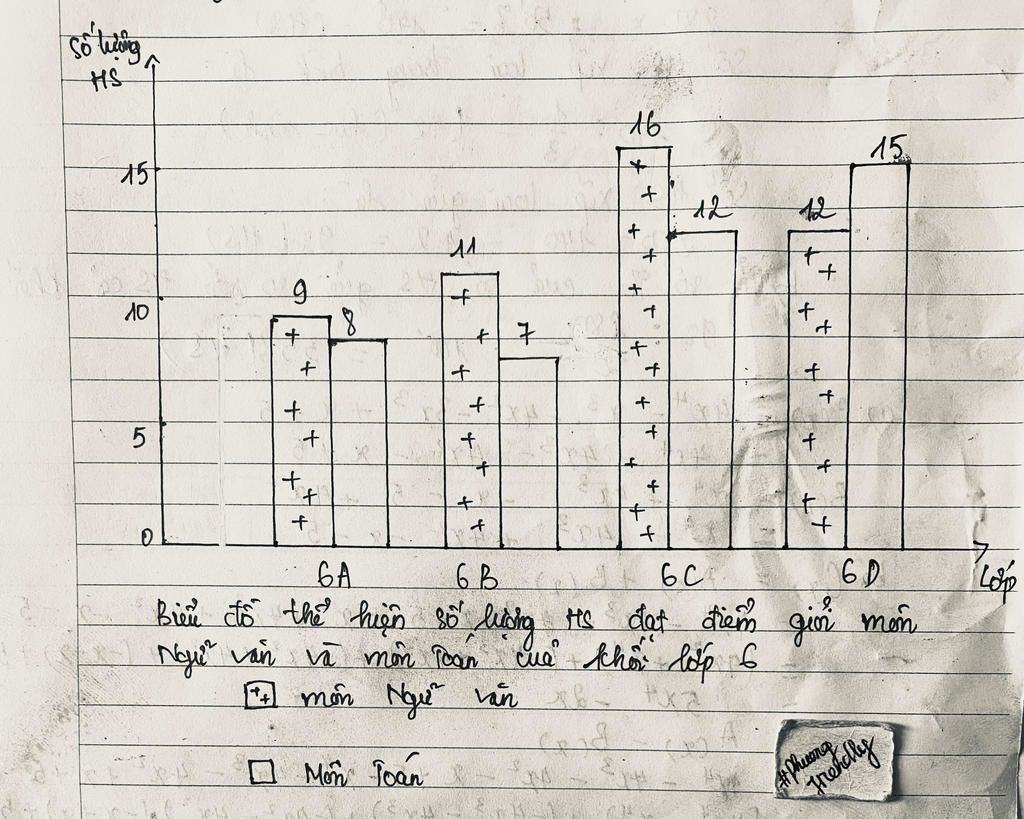 Số lượng
HS
16
15
15
12
12
11
10
9
8
7
5
0
6A 6B 6C 6D Lớp
Biểu đồ thể hiện số lượng HS đạt điểm giỏi môn
Ngữ văn và môn Toán của khối lớp 6
môn Ngữ văn
Môn Toán
#phuong
friendly